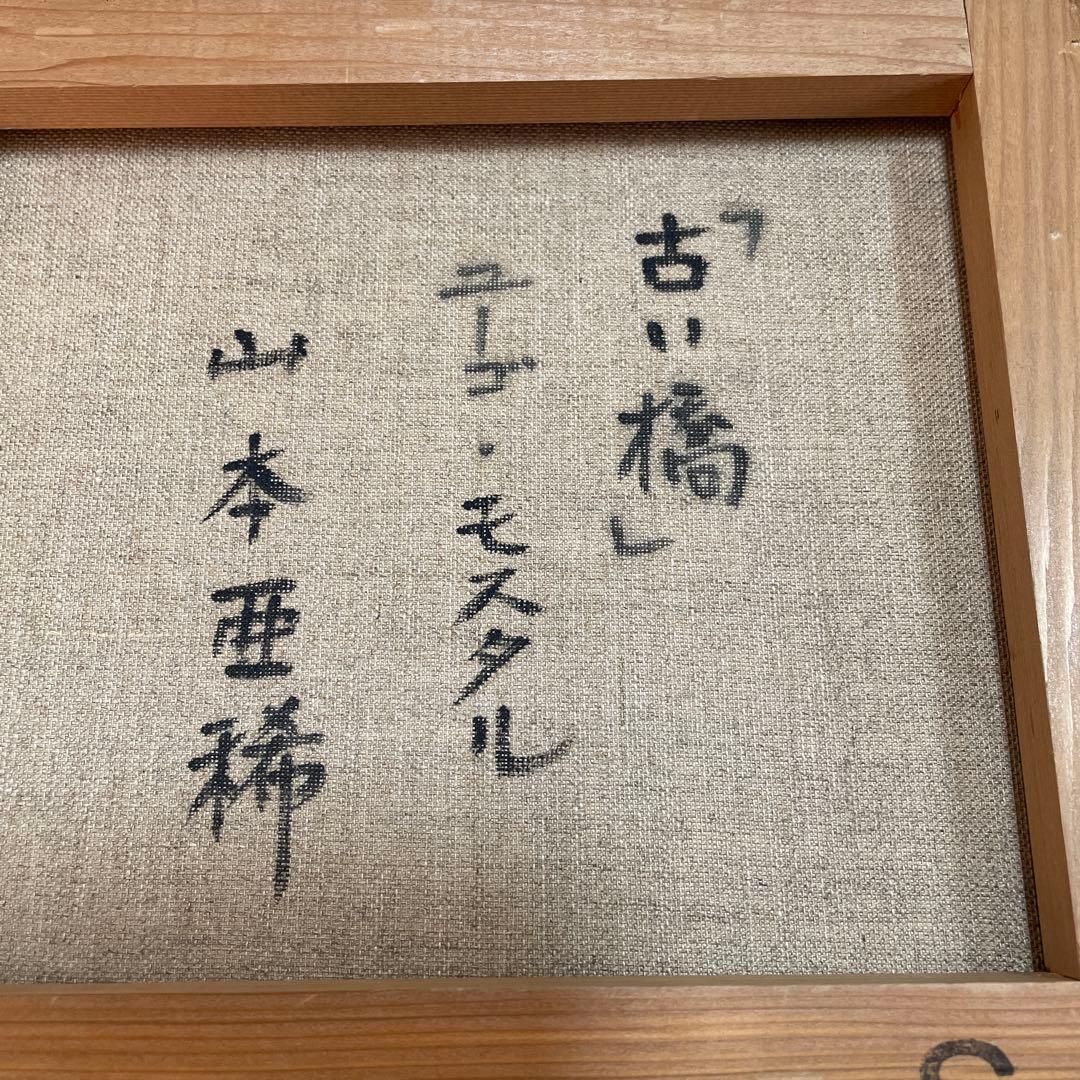 「古い橋」
ユーゴ・モスタル
山本亜稀